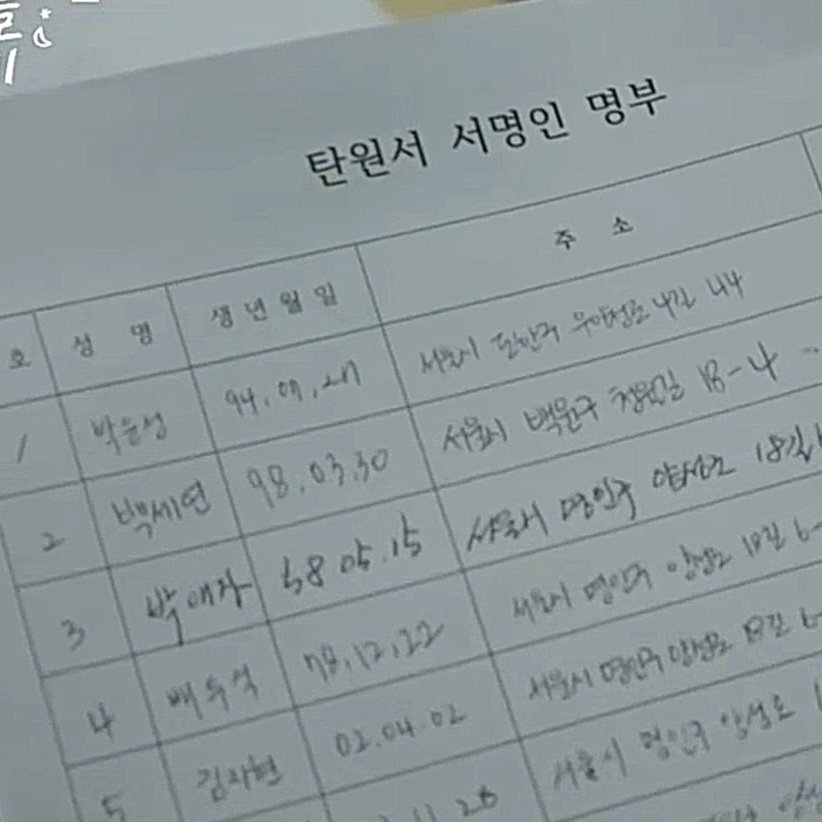 탄원서 서명인 명부
호 성 명 생년월일 주 소
1 박윤성 94.07.27 서울시
2 박세연 98.03.30 서울시 백운구 청원길 18-4
3 박애자 58 05.15 서울시 명인구 양성로 18길
4 배수석 78.12.22 서울시 명인구 양성로 18길 6-
5 김자현 02.04.02 서울시 명인구 양성로 18길 6-
11 26 서울시 명인구 양성로 1